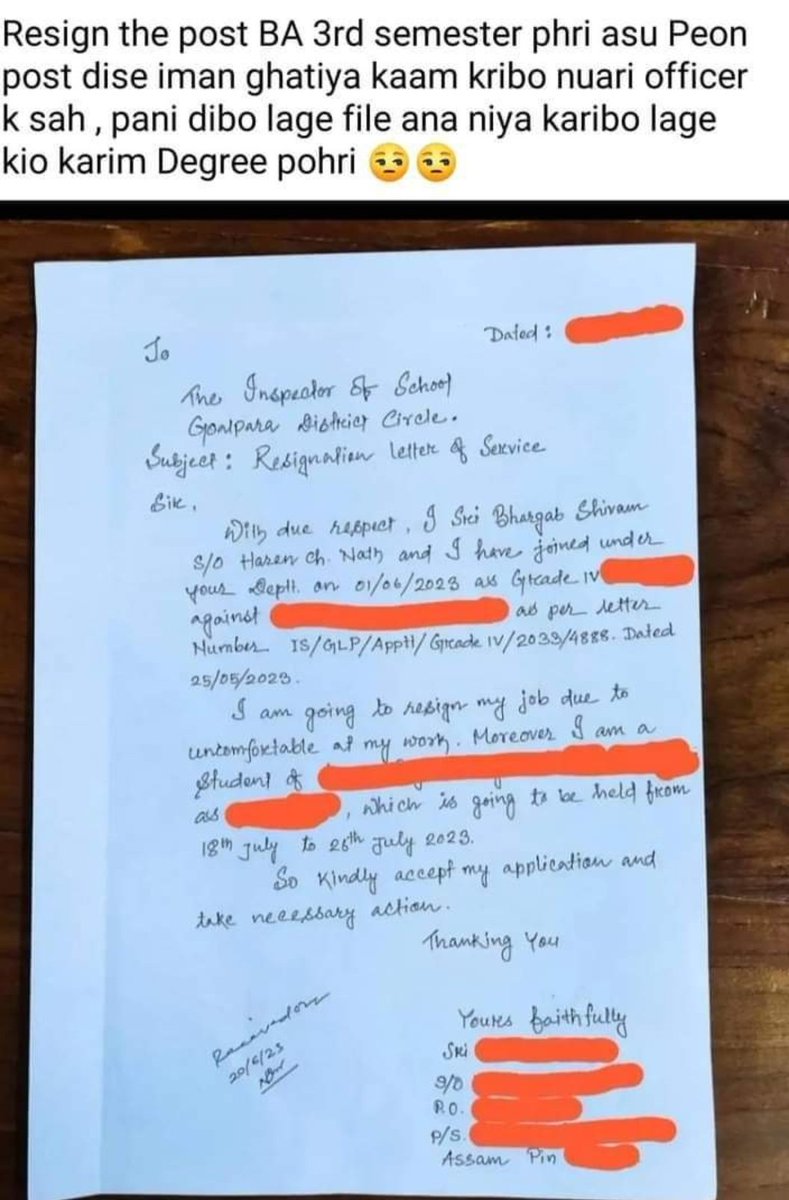 Resign the post BA 3rd semester phri asu Peon
post dise iman ghatiya kaam kribo nuari officer
k sah , pani dibo lage file ana niya karibo lage
kio karim Degree pohri 😒😒
Dated :
To
The Inspector Of School
Goalpara District Circle.
Subject : Resignation letter of Service
Sir,
With due respect, I Sri Bhargab Shivam
S/o Haren Ch. Nath and I have joined under
your Deptt. on 01/06/2023 as Grade IV
against as per letter
Number IS/GLP/Apptt/Grade IV/2033/4888. Dated
25/05/2023.
I am going to resign my job due to
uncomfortable at my work. Moreover I am a
Student of
ass , which is going to be held from
18th July to 26th July 2023.
So Kindly accept my application and
take necessary action.
Thanking You
Yours faithfully
Sri
S/O
P.O.
P/S.
Assam Pin
20/6/23